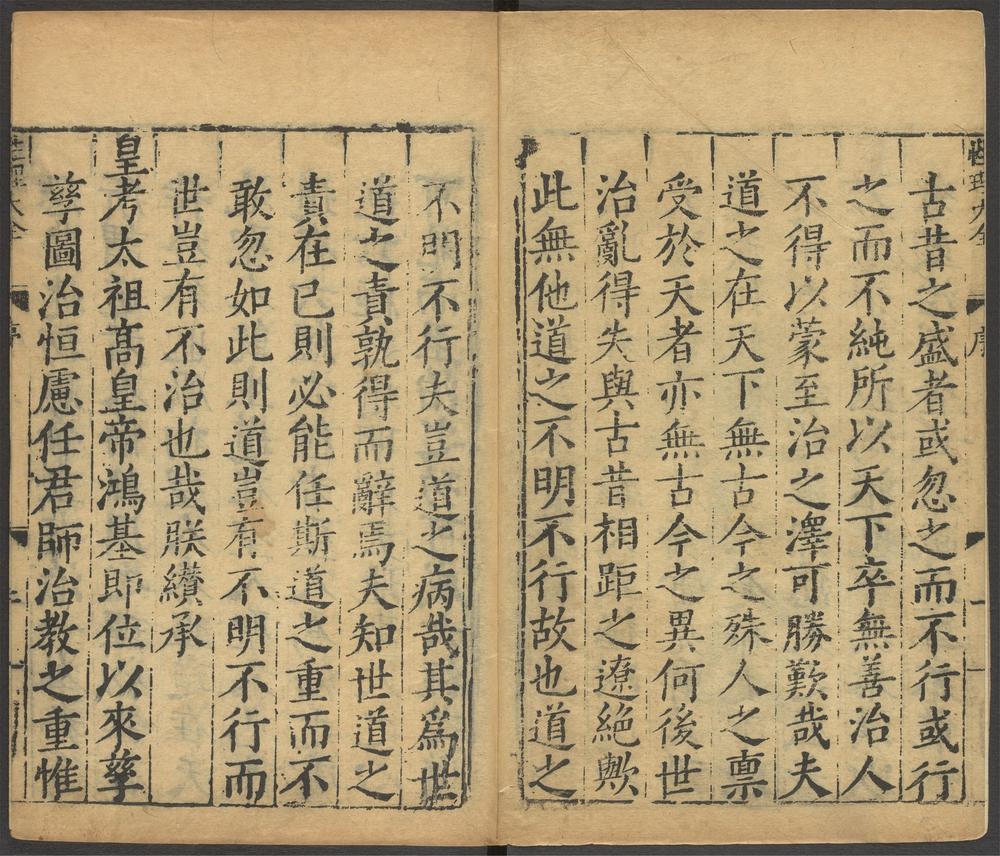 性理大全
序
古昔之盛者或忽之而不行或行
之而不純所以天下卒無善治人
不得以蒙至治之澤可勝歎哉夫
道之在天下無古今之殊人之禀
受於天者亦無古今之異何後世
治亂得失與古昔相距之遼絶歟
此無他道之不明不行故也道之
不明不行夫豈道之病哉其為世
道之責孰得而辭焉夫知世道之
責在已則必能任斯道之重而不
敢忽如此則道豈有不明不行而
世豈有不治也哉朕纉承
皇考太祖髙皇帝鴻基即位以來孳
孳圖治恒慮任君師治教之重惟
性理大全
序